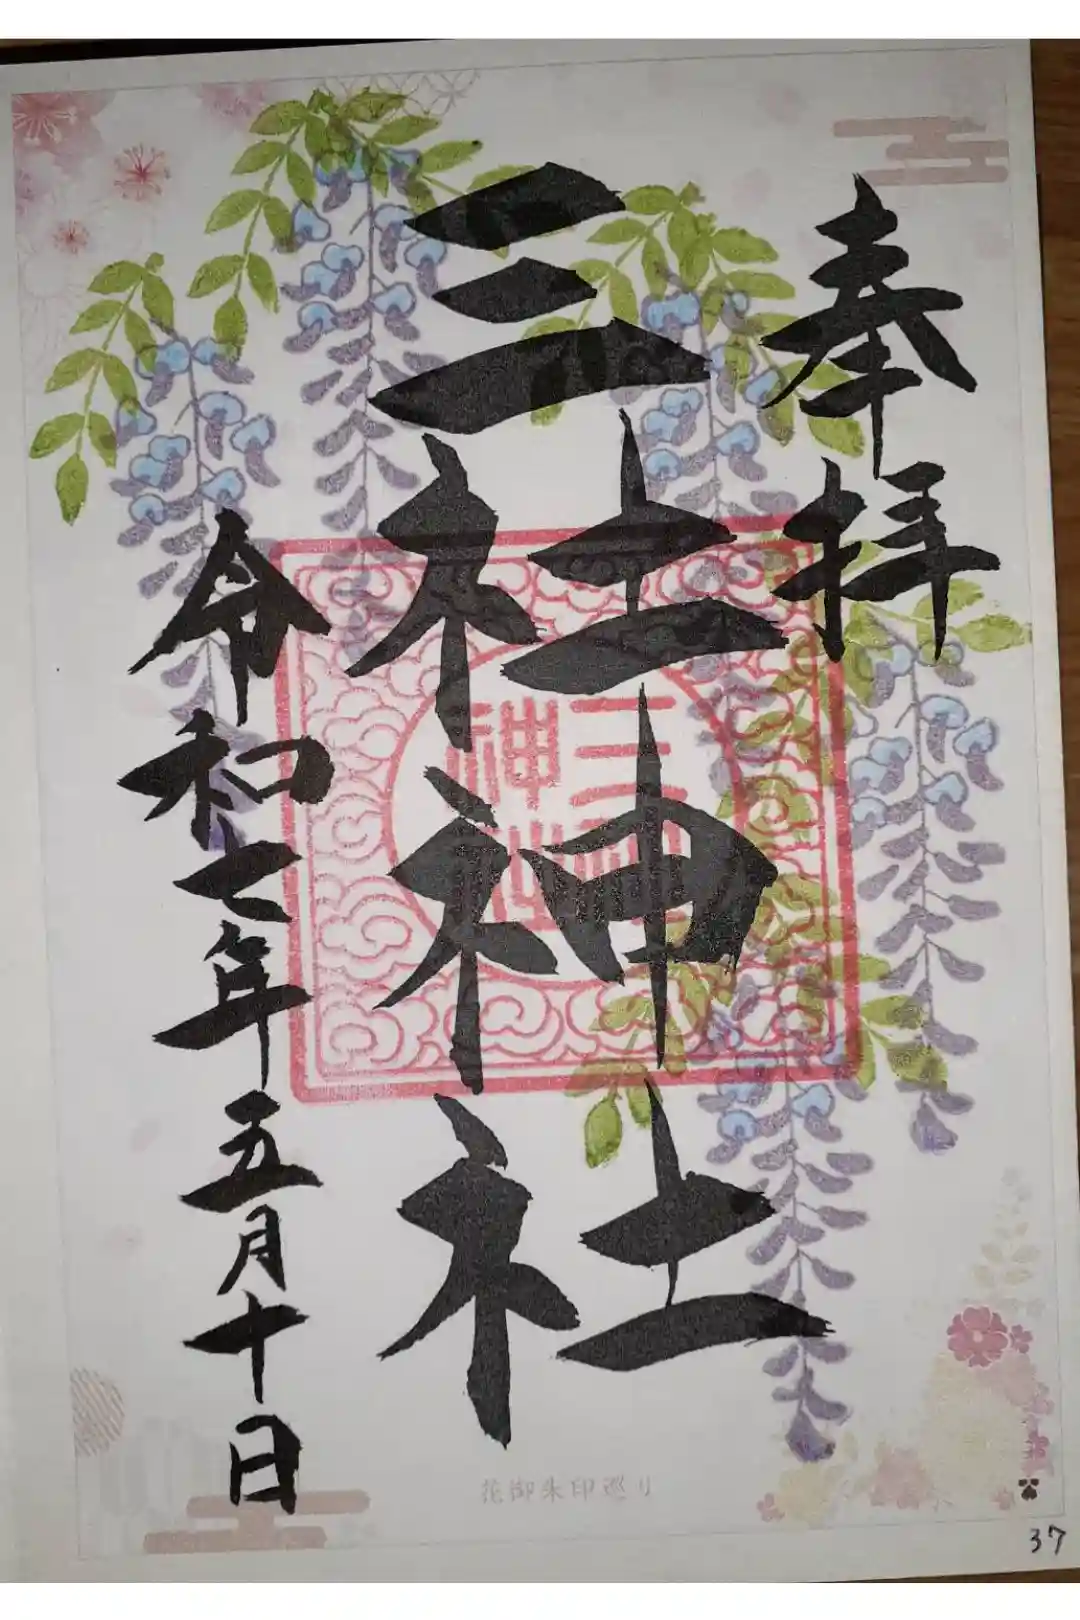 奉拝
三社神社
三社神社
令和七年五月十日
花御朱印巡り
37